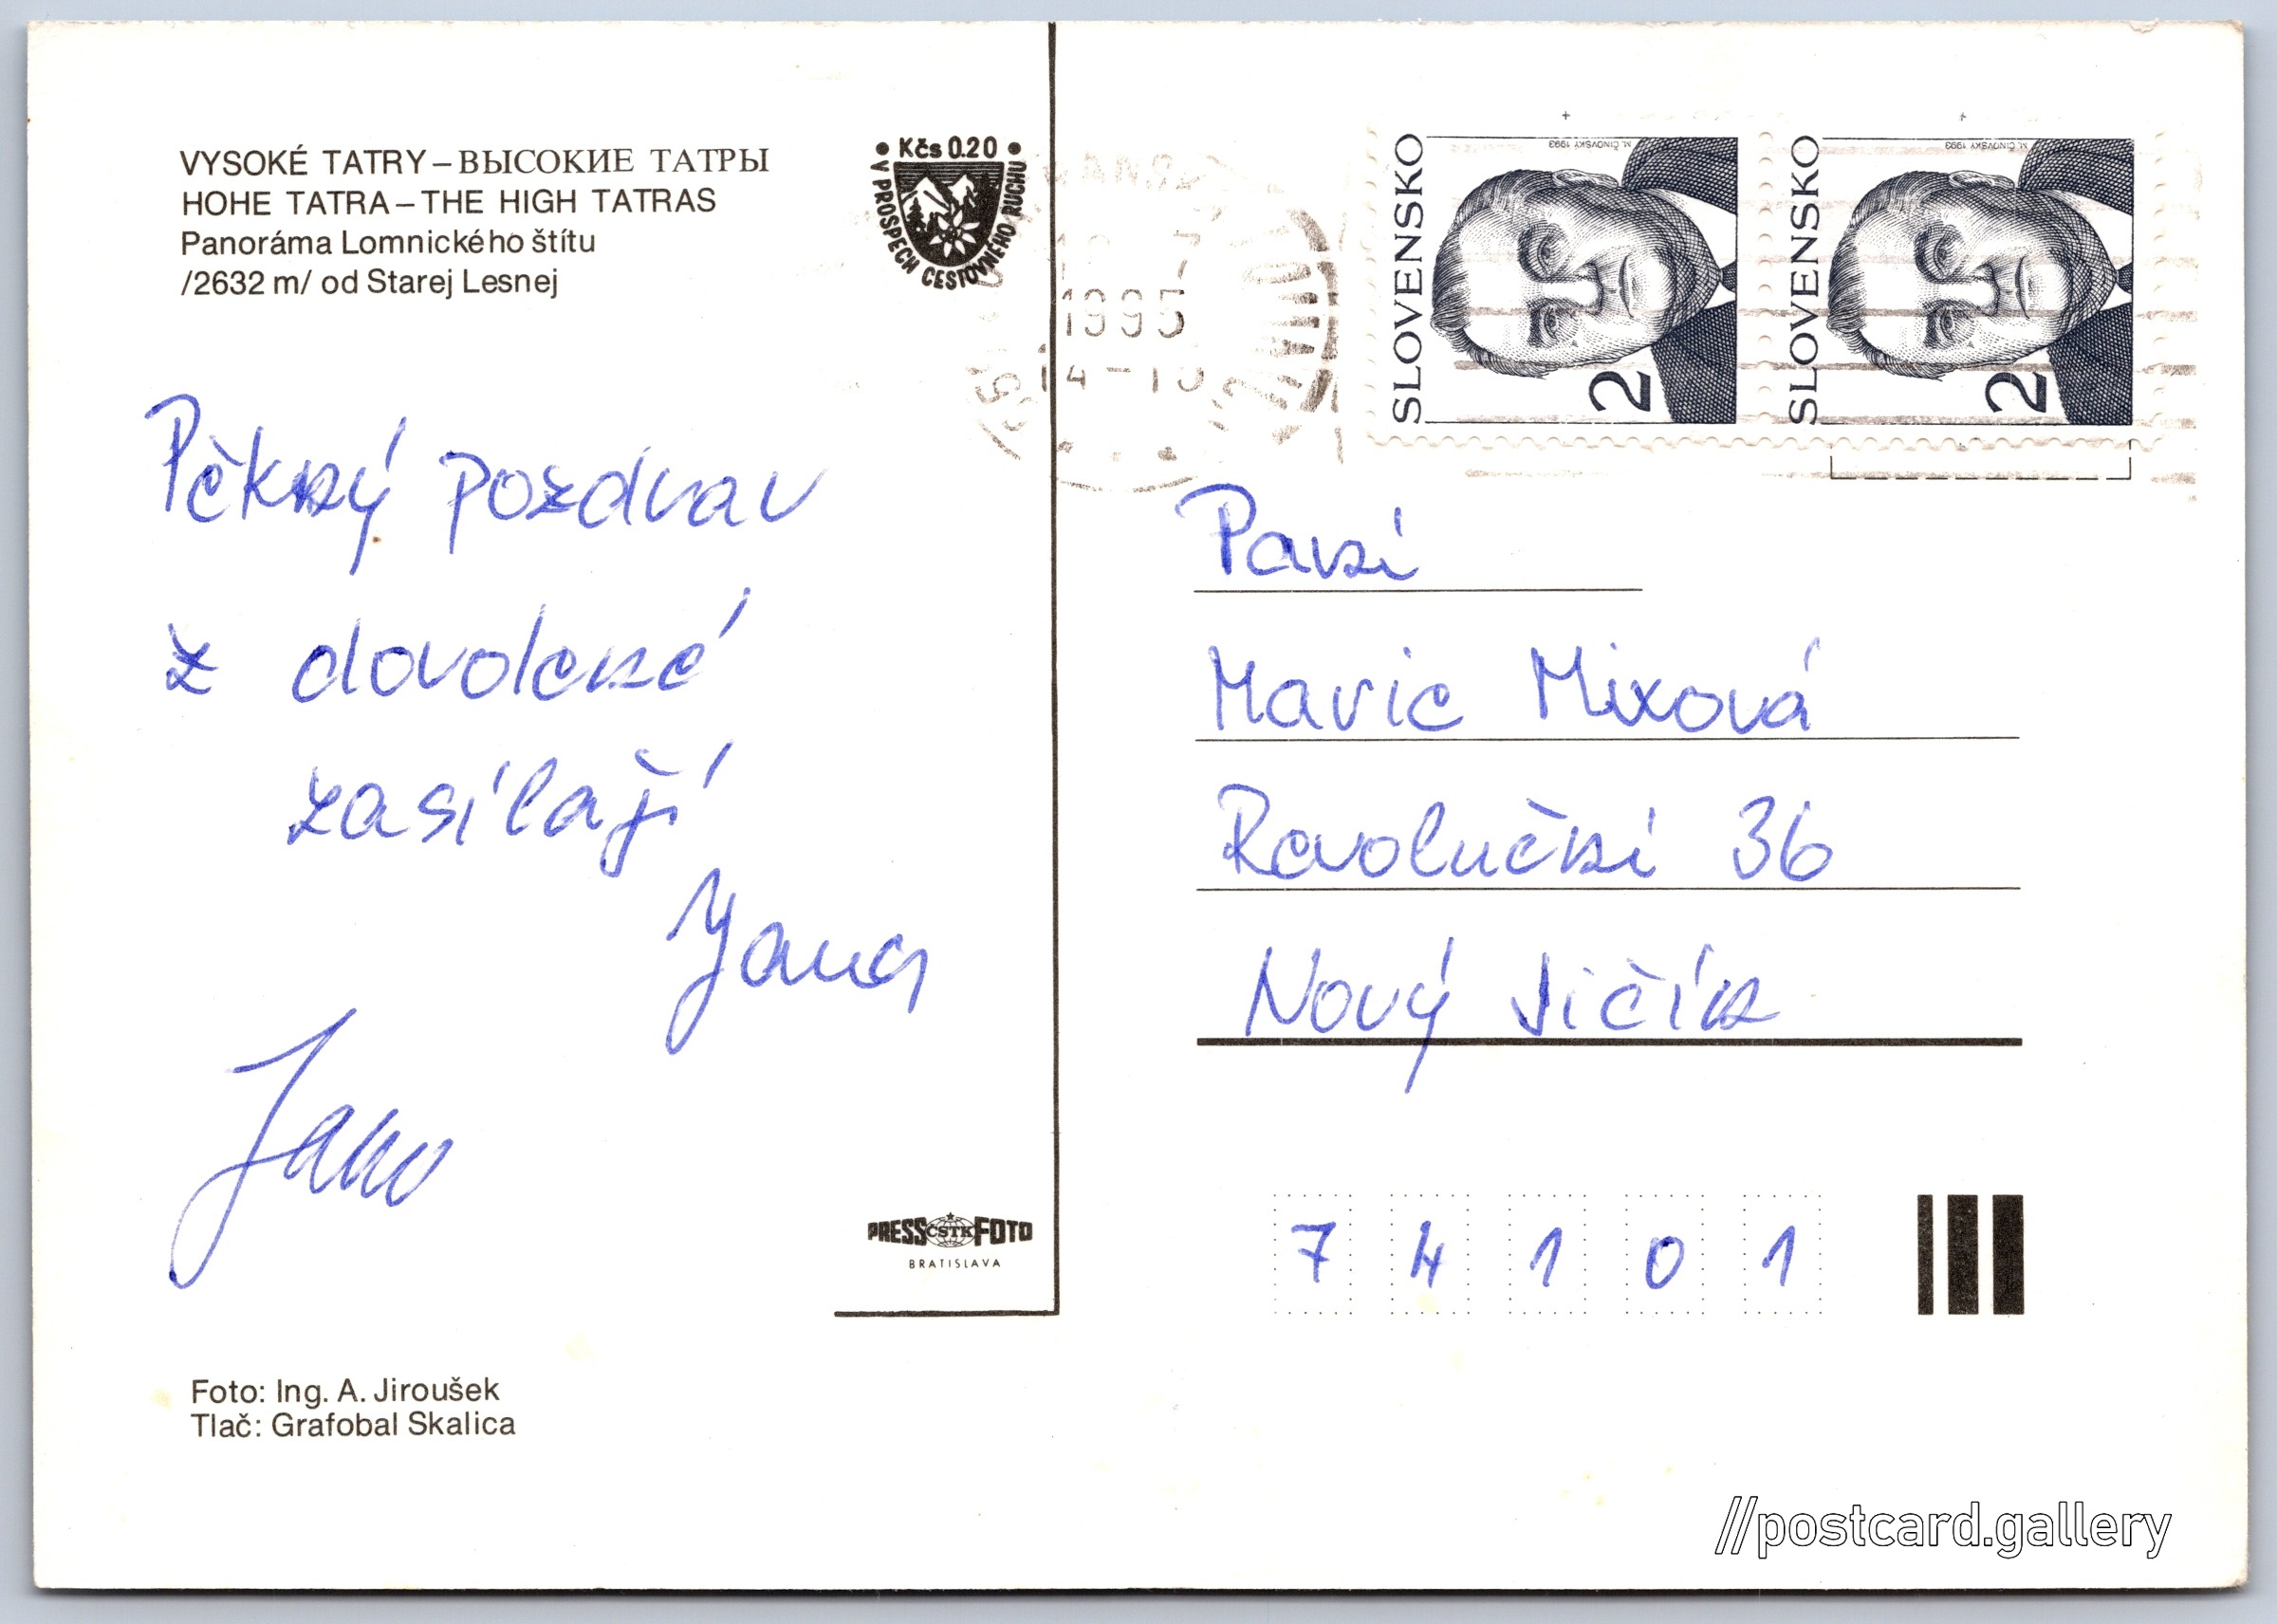 VYSOKÉ TATRY – ВЫСОКИЕ ТАТРЫ
HOHE TATRA – THE HIGH TATRAS
Panoráma Lomnického štítu
/2632 m/ od Starej Lesnej
• Kčs 0.20 •
V PROSPECH CESTOVNÉHO RUCHU
1995
SLOVENSKO
2
M. ČINOVSKÝ 1993
SLOVENSKO
2
M. ČINOVSKÝ 1993
Pěkný pozdrav
z dovolené
zasílají
Jana
Jano
Paní
Marie Mixová
Revoluční 36
Nový Jičín
74101
PRESS ČSTK FOTO
BRATISLAVA
Foto: Ing. A. Jiroušek
Tlač: Grafobal Skalica
//postcard.gallery